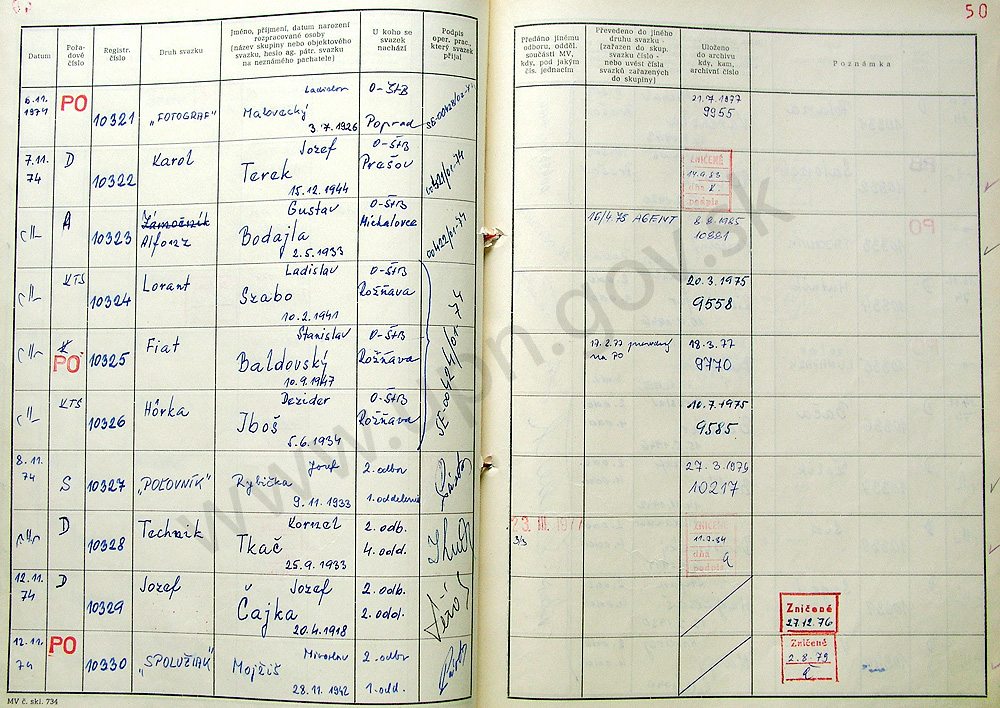 50
Datum
Pořa-
dové
číslo
Registr.
číslo
Druh svazku
Jméno, příjmení, datum narození
rozpracované osoby
[název skupiny nebo objektového
svazku, heslo ag. pátr. svazku
na neznámého pachatele]
U koho se
svazek
nachází
Podpis
oper. prac.,
který svazek
přijal
Předáno jinému
odboru, odděl.
součásti MV,
kdy, pod jakým
čís. jednacím
Převedeno do jiného
druhu svazku -
[zařazen do skup.
svazku číslo -
nebo uvést čísla
svazků zařazených
do skupiny]
Uloženo
do archivu
kdy, kam,
archivní číslo
Poznámka
6.11.
1974
PO
10321
"FOTOGRAF"
Ladislav
Malovecký
3.7.1926
O-ŠtB
Poprad
21.7.1977
9955
7.11.
74
D
10322
Karol
Jozef
Terek
15.12.1944
O-ŠtB
Prešov
ZNIČENÉ
14.9.83
dňa
podpis
-"-
A
10323
Zámočník
Alfonz
Gustav
Bodajla
2.5.1933
O-ŠtB
Michalovce
00422/01-74
16/4.75 AGENT
8.8.1985
10881
-"-
KTS
10324
Lorant
Ladislav
Szabo
10.2.1941
O-ŠtB
Rožňava
SE-00424/01-74
20.3.1975
9558
-"-
PO
10325
Fiat
Stanislav
Baldovský
10.9.1947
O-ŠtB
Rožňava
17.2.77 prevedený
na PO
18.3.77
9770
-"-
KTS
10326
Hôrka
Dezider
Iboš
5.6.1934
O-ŠtB
Rožňava
10.7.1975
9585
8.11.
74
S
10327
"POĽOVNÍK"
Jozef
Rybička
9.11.1933
2.odbor
1.oddelenie
27.3.1979
10217
-"-
D
10328
Technik
Kornel
Tkáč
25.9.1933
2.odb.
4.odd.
23. III. 1977
ZNIČENÉ
11.9.84
dňa
podpis
12.11.
74
D
10329
Jozef
Jozef
Čajka
20.4.1918
2.odb.
2.odd.
Zničené
27.12.76
12.11.
74
PO
10330
"SPOLUŽIAK"
Miroslav
Mojžiš
28.11.1942
2.odbor
1.odd.
Zničené
2.8.79
MV č. skl. 734
www.upn.gov.sk